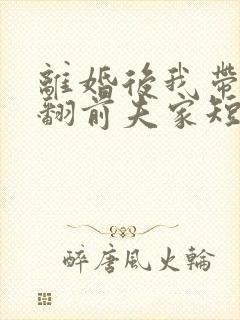 離婚後我帶
翻前夫家短
醉唐風火輪